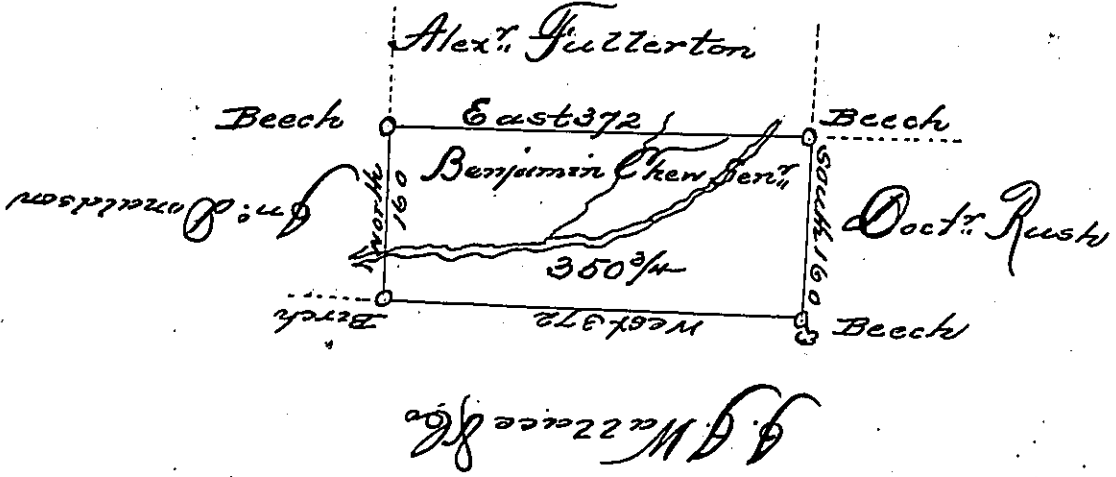 Alexr. Fullerton
Beech
East 372
Beech
Benjamin Chew Senr.
North 160
Jno. Donaldson
South 160
Doctr. Rush
350 3/4
Birch
West 372
Beech
Wallace & Co